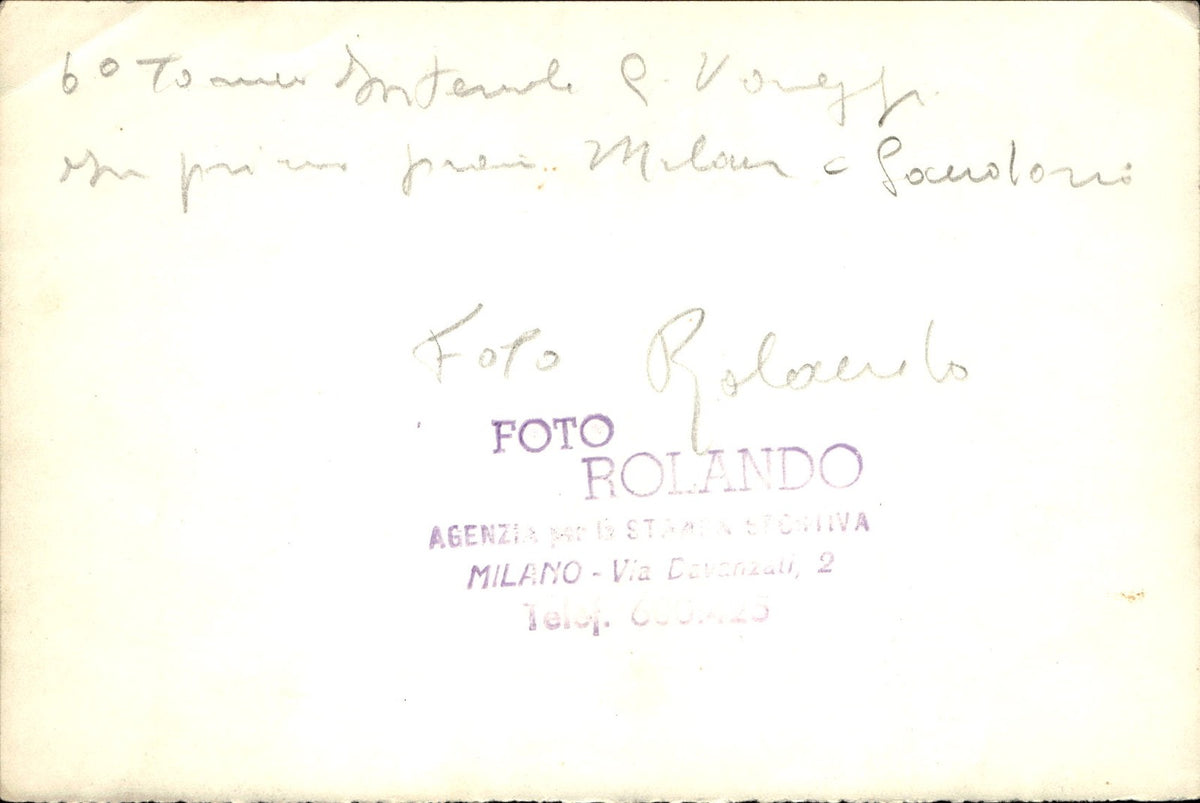 6° Torneo Internaz. C. Voreggi
In primo piano Milan e
Foto Rolando
FOTO
ROLANDO
AGENZIA per la STAMPA SPORTIVA
MILANO - Via Davanzati, 2
Telef.